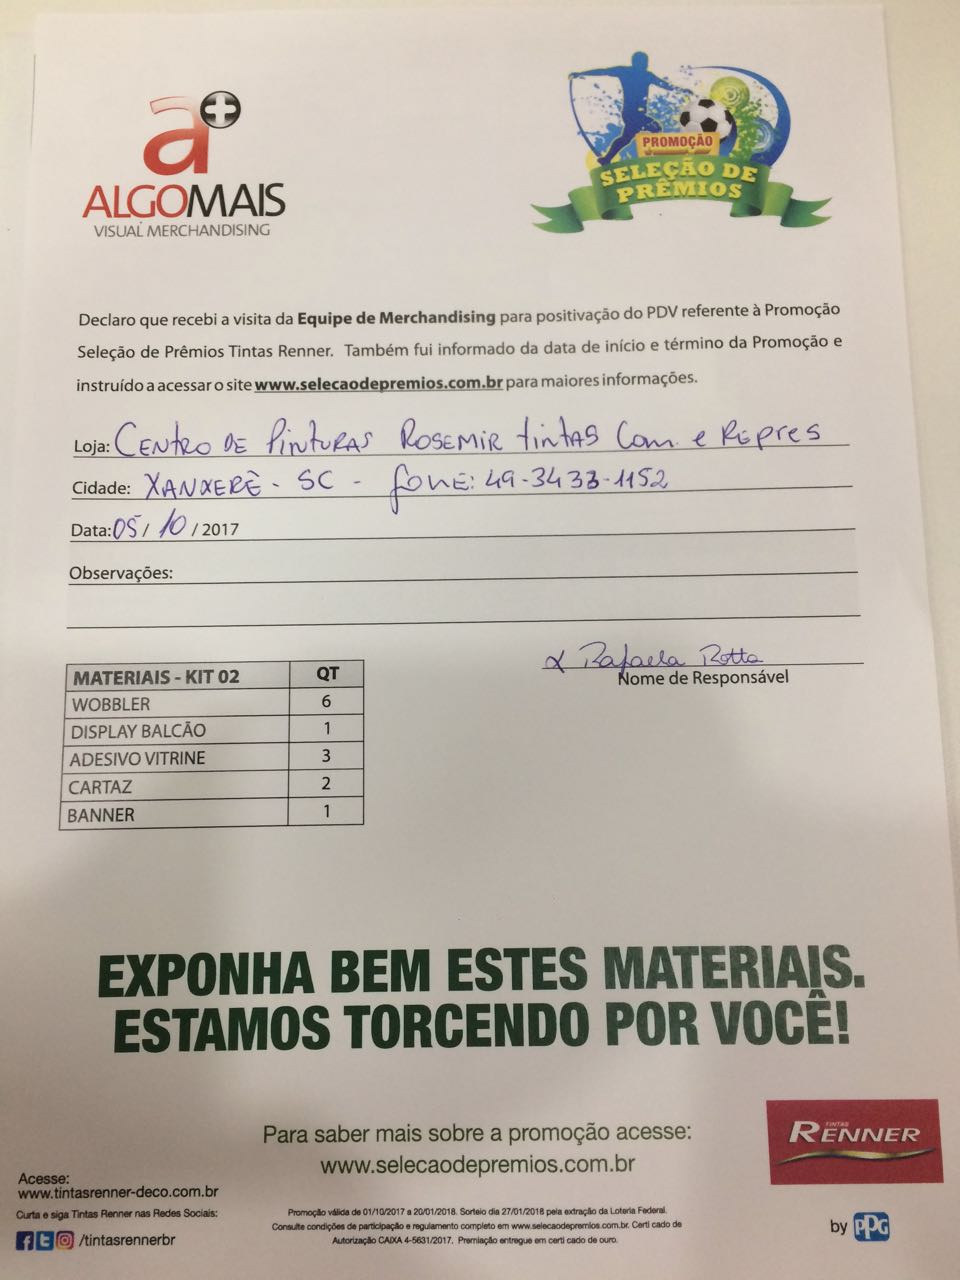 a+
ALGOMAIS
VISUAL MERCHANDISING
PROMOÇÃO
SELEÇÃO DE
PRÊMIOS
Declaro que recebi a visita da Equipe de Merchandising para positivação do PDV referente à Promoção
Seleção de Prêmios Tintas Renner. Também fui informado da data de início e término da Promoção e
instruído a acessar o site www.selecaodepremios.com.br para maiores informações.
Loja: CENTRO DE PINTURAS ROSEMIR tintAS Com. e REPRES
Cidade: XANXERÊ - SC - fone: 49-3433-1152
Data: 05/ 10 / 2017
Observações:
α Rafaela Rotta
Nome de Responsável
MATERIAIS - KIT 02 QT
WOBBLER 6
DISPLAY BALCÃO 1
ADESIVO VITRINE 3
CARTAZ 2
BANNER 1
EXPONHA BEM ESTES MATERIAIS.
ESTAMOS TORCENDO POR VOCÊ!
Para saber mais sobre a promoção acesse:
www.selecaodepremios.com.br
TINTAS
RENNER
Acesse:
www.tintasrenner-deco.com.br
Curta e siga Tintas Renner nas Redes Sociais:
/tintasrennerbr
Promoção válida de 01/10/2017 a 20/01/2018. Sorteio dia 27/01/2018 pela extração da Loteria Federal.
Consulte condições de participação e regulamento completo em www.selecaodepremios.com.br. Certi cado de
Autorização CAIXA 4-5631/2017. Premiação entregue em certi cado de ouro.
by PPG